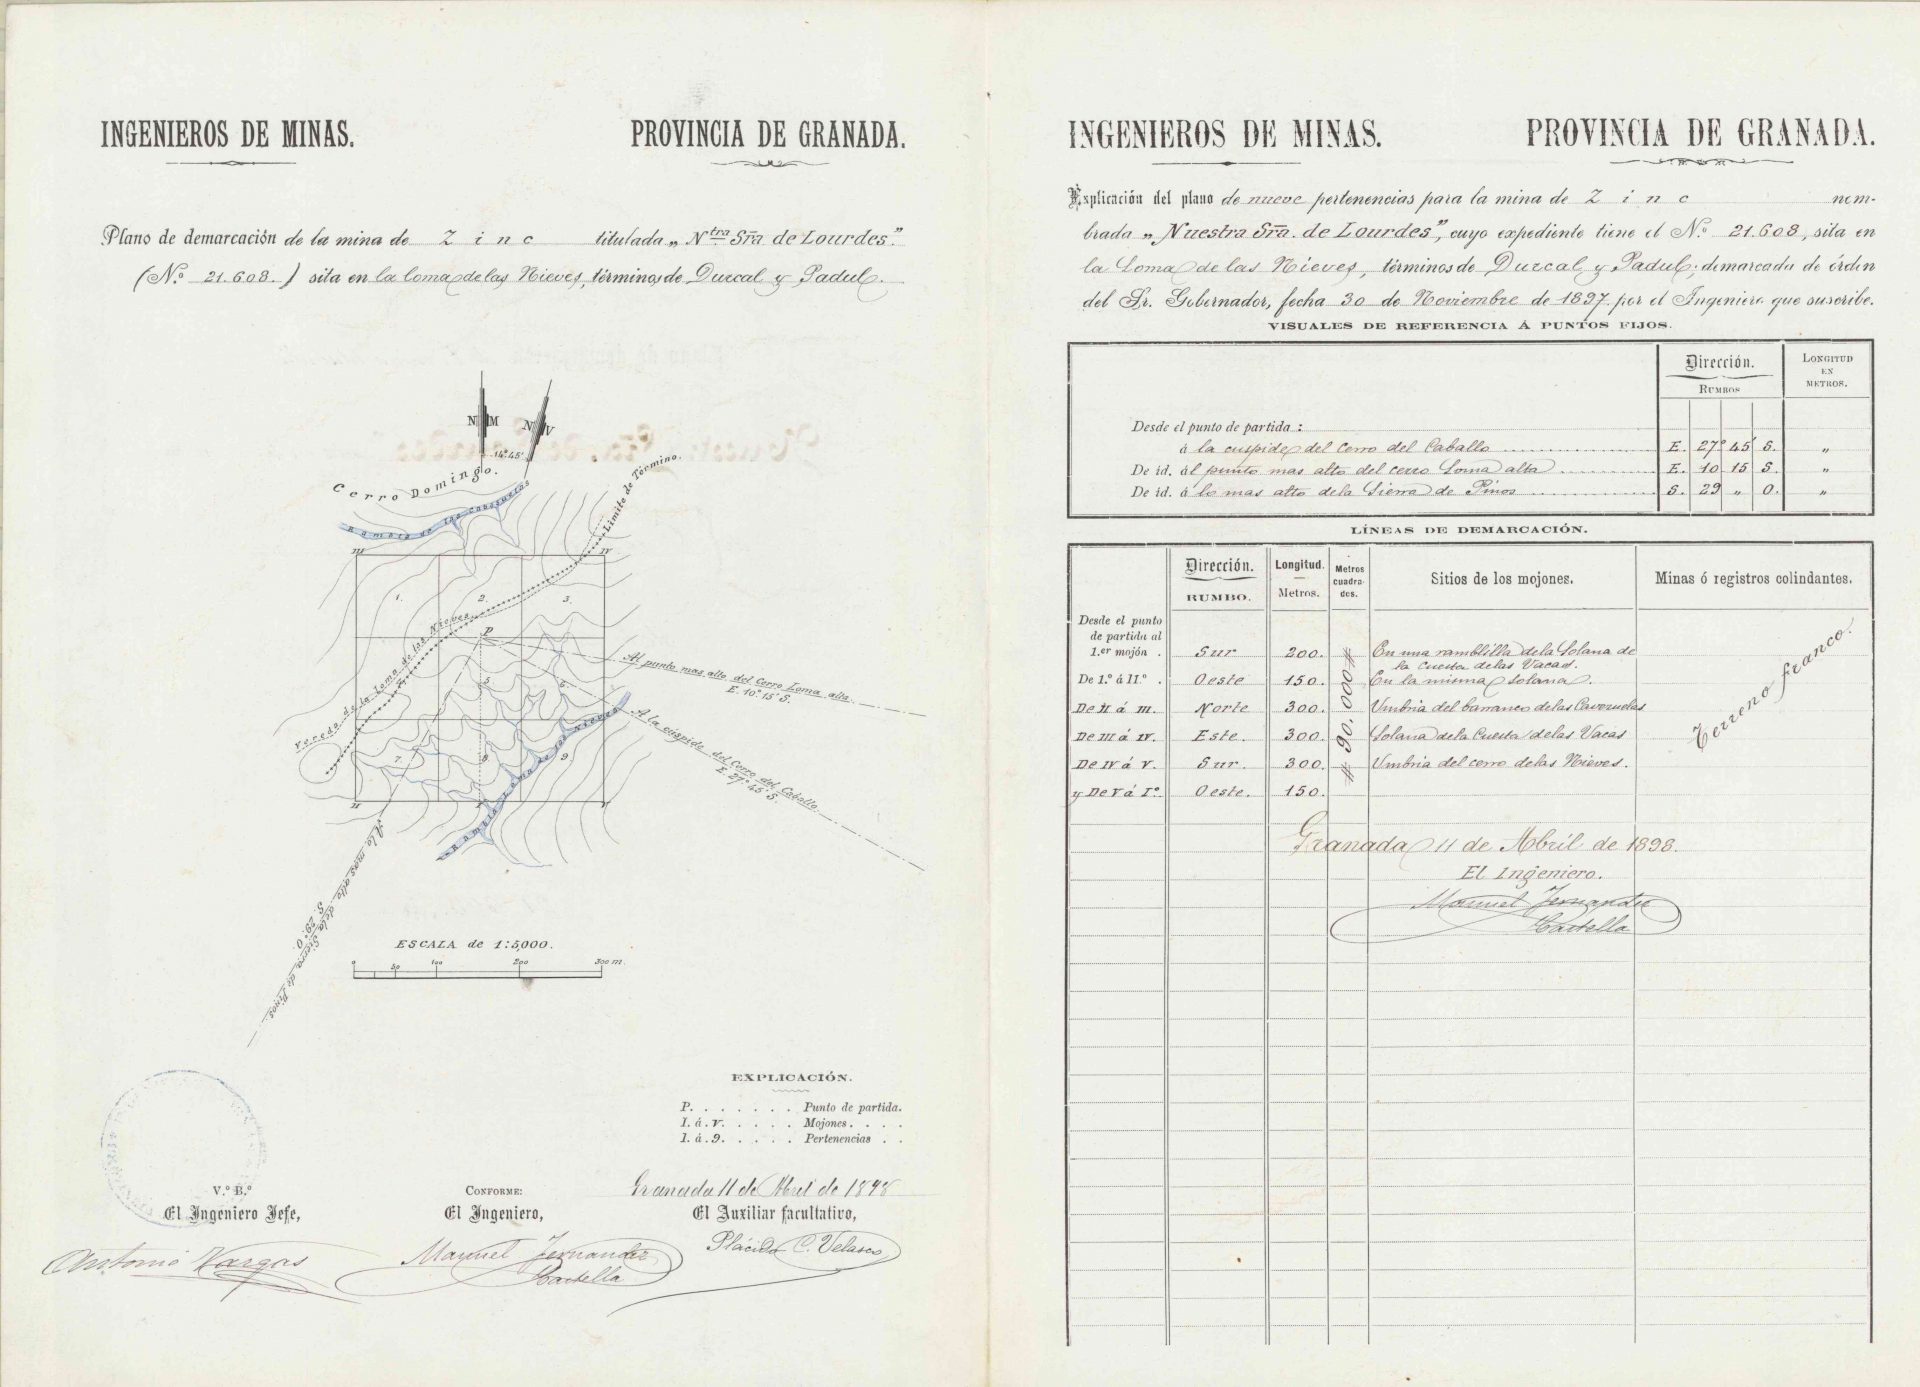 INGENIEROS DE MINAS.
PROVINCIA DE GRANADA.
Plano de demarcación de la mina de Zinc titulada „Ntra Sra. de Lourdes."
(N.º 21.608.) sita en la loma de las Nieves, términos de Durcal y Padul.
N M
N V
14º.45'
Cerro Domingo.
Límite de Término.
III
IV
1.
2.
3.
Vereda de la Loma de las Nieves
P
5
6
7.
8
9
Al punto mas alto del Cerro Loma alta.
E. 10º.15' S.
A la cúspide del Cerro del Caballo.
E. 27º.45' S.
Rambla Loma de las Nieves
II
I
V
A lo mas alto de la Sierra de Pinos.
S. 29º. O.
ESCALA de 1:5,000.
0 50 100 200 300 m.
EXPLICACIÓN.
P. . . . . . . Punto de partida.
I. á .V. . . . . Mojones. . . .
1. á .9. . . . . Pertenencias . .
Granada 11 de Abril de 1898
V.º B.º
El Ingeniero Jefe,
Antonio Vargas
CONFORME:
El Ingeniero,
Manuel Fernandez
Castella
El Auxiliar facultativo,
Plácido C. Velasco
INGENIEROS DE MINAS.
PROVINCIA DE GRANADA.
Explicación del plano de nueve pertenencias para la mina de Zinc nom-
brada „Nuestra Sra. de Lourdes", cuyo expediente tiene el N.º 21.608, sita en
la Loma de las Nieves, términos de Durcal y Padul; demarcada de órden
del Sr. Gobernador, fecha 30 de Noviembre de 1897 por el Ingeniero que suscribe.
VISUALES DE REFERENCIA Á PUNTOS FIJOS.
Dirección.
RUMBOS
LONGITUD EN METROS.
Desde el punto de partida :
á la cuspide del Cerro del Caballo E. 27º 45' S. „
De id. ál punto mas alto del cerro Loma alta E. 10 15 S. „
De id. á lo mas alto de la Sierra de Pinos S. 29 „ O. „
LÍNEAS DE DEMARCACIÓN.
Dirección.
RUMBO.
Longitud.
Metros.
Metros cuadra-dos.
Sitios de los mojones.
Minas ó registros colindantes.
Desde el punto
de partida al
1.er mojón . Sur 200. En una ramblilla de la Solana de
la Cuesta de las Vacas.
De 1.º á II.º . Oeste 150. En la misma solana.
De II á III. Norte 300. Umbria del barranco de las Cavezuelas
De III á IV. Este. 300. Solana de la Cuesta de las Vacas
De IV á V. Sur. 300. Umbria del cerro de las Nieves.
y De V á Iº. Oeste. 150.
# 90.000 #
Terreno franco.
Granada 11 de Abril de 1898.
El Ingeniero.
Manuel Fernandez
Castella